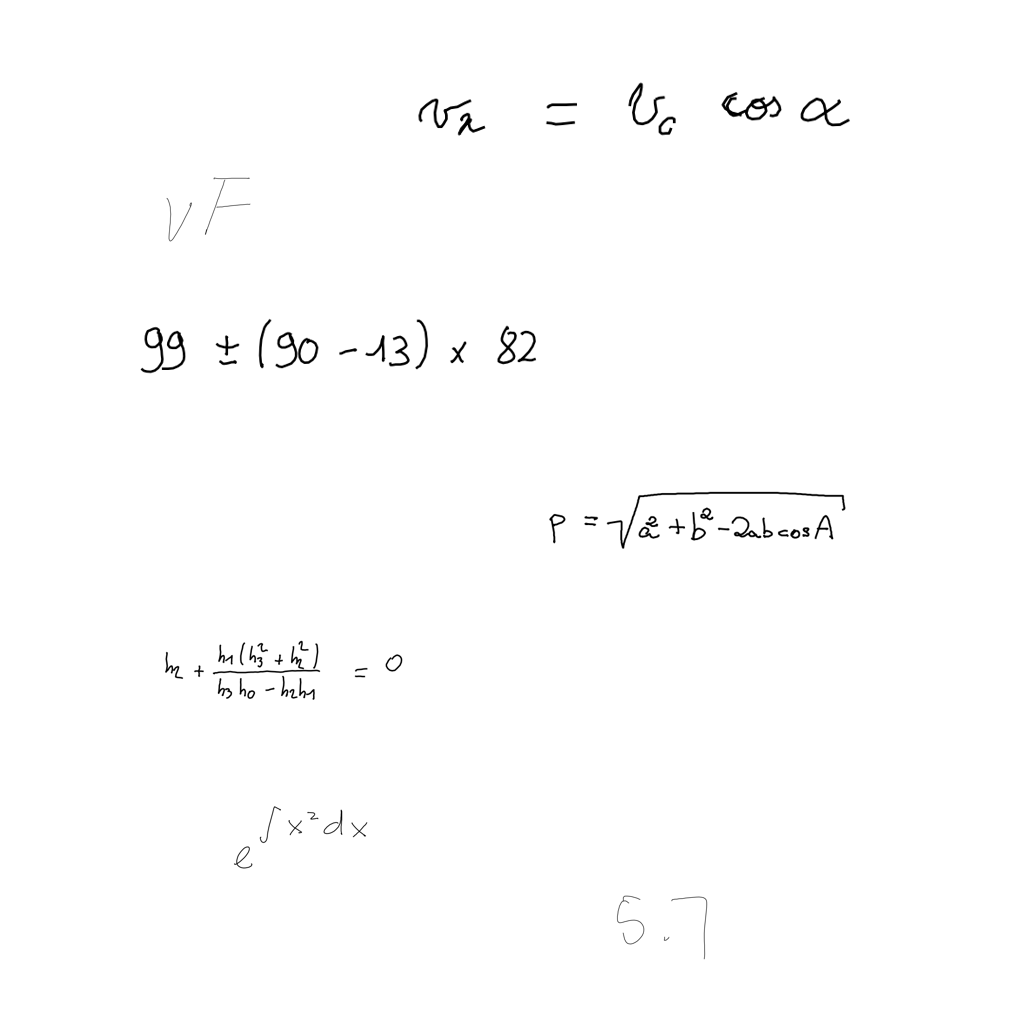 v_x = v_c cos α
vF
99 ± (90 - 13) × 82
p = √(a² + b² - 2ab cos A)
h_2 + (h_1(h_3² + h_2²))/(h_3 h_0 - h_2 h_1) = 0
e^(∫x² dx)
5.7